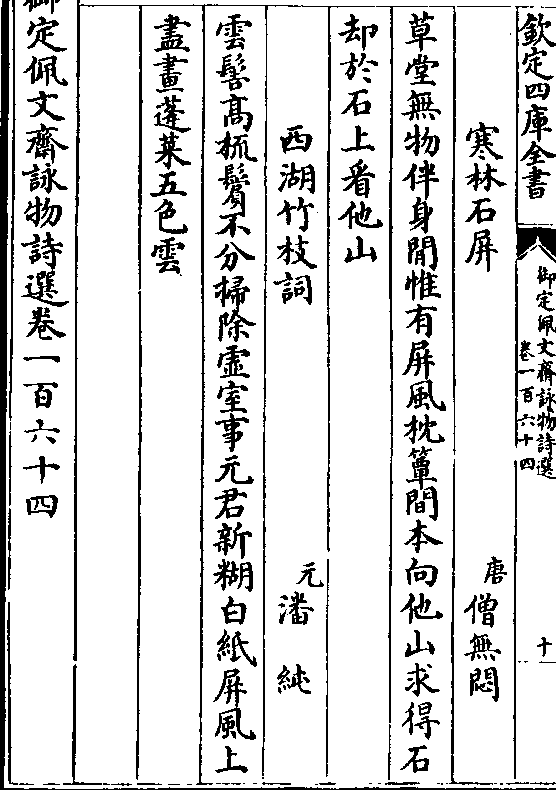 欽定四庫全書
御定佩文齋詠物詩選
卷一百六十四
十
寒林石屏
唐僧無悶
草堂無物伴身閒惟有屏風枕簟間本向他山求得石
却於石上看他山
西湖竹枝詞
元潘純
雲髻高梳鬢不分掃除虛室事元君新糊白紙屏風上
盡畫蓬萊五色雲
御定佩文齋詠物詩選卷一百六十四